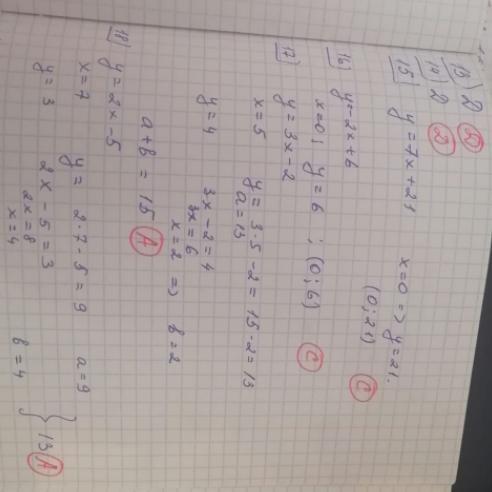 13) 2 D
14) 2 D
15) y = 7x + 21 x = 0 => y = 21.
(0; 21) C
16) y - 2x + 6
x = 0; y = 6 ; (0; 6) C
17) y = 3x - 2
x = 5 y = 3·5 - 2 = 15 - 2 = 13
a = 13
y = 4 3x - 2 = 4
3x = 6
x = 2 => b = 2
a + b = 15 A
18) y = 2x - 5
x = 7 y = 2·7 - 5 = 9 a = 9
y = 3 2x - 5 = 3
2x = 8
x = 4 b = 4 } 13 A